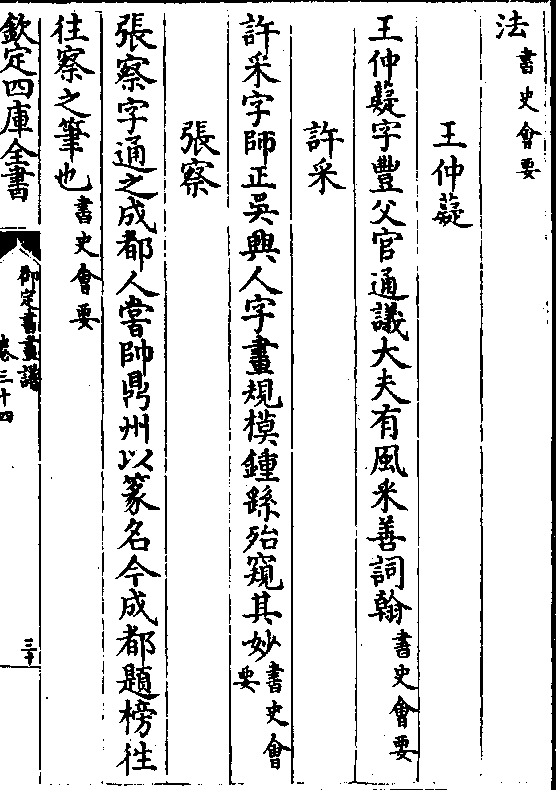 法書史會要
王仲薿
王仲薿字豐父官通議大夫有風采善詞翰書史會要
許采
許采字師正吳興人字畫規模鍾繇殆窺其妙書史會要
張察
張察字通之成都人嘗帥鼎州以篆名今成都題榜往
往察之筆也書史會要
欽定四庫全書
御定書畫譜
卷三十四
三十